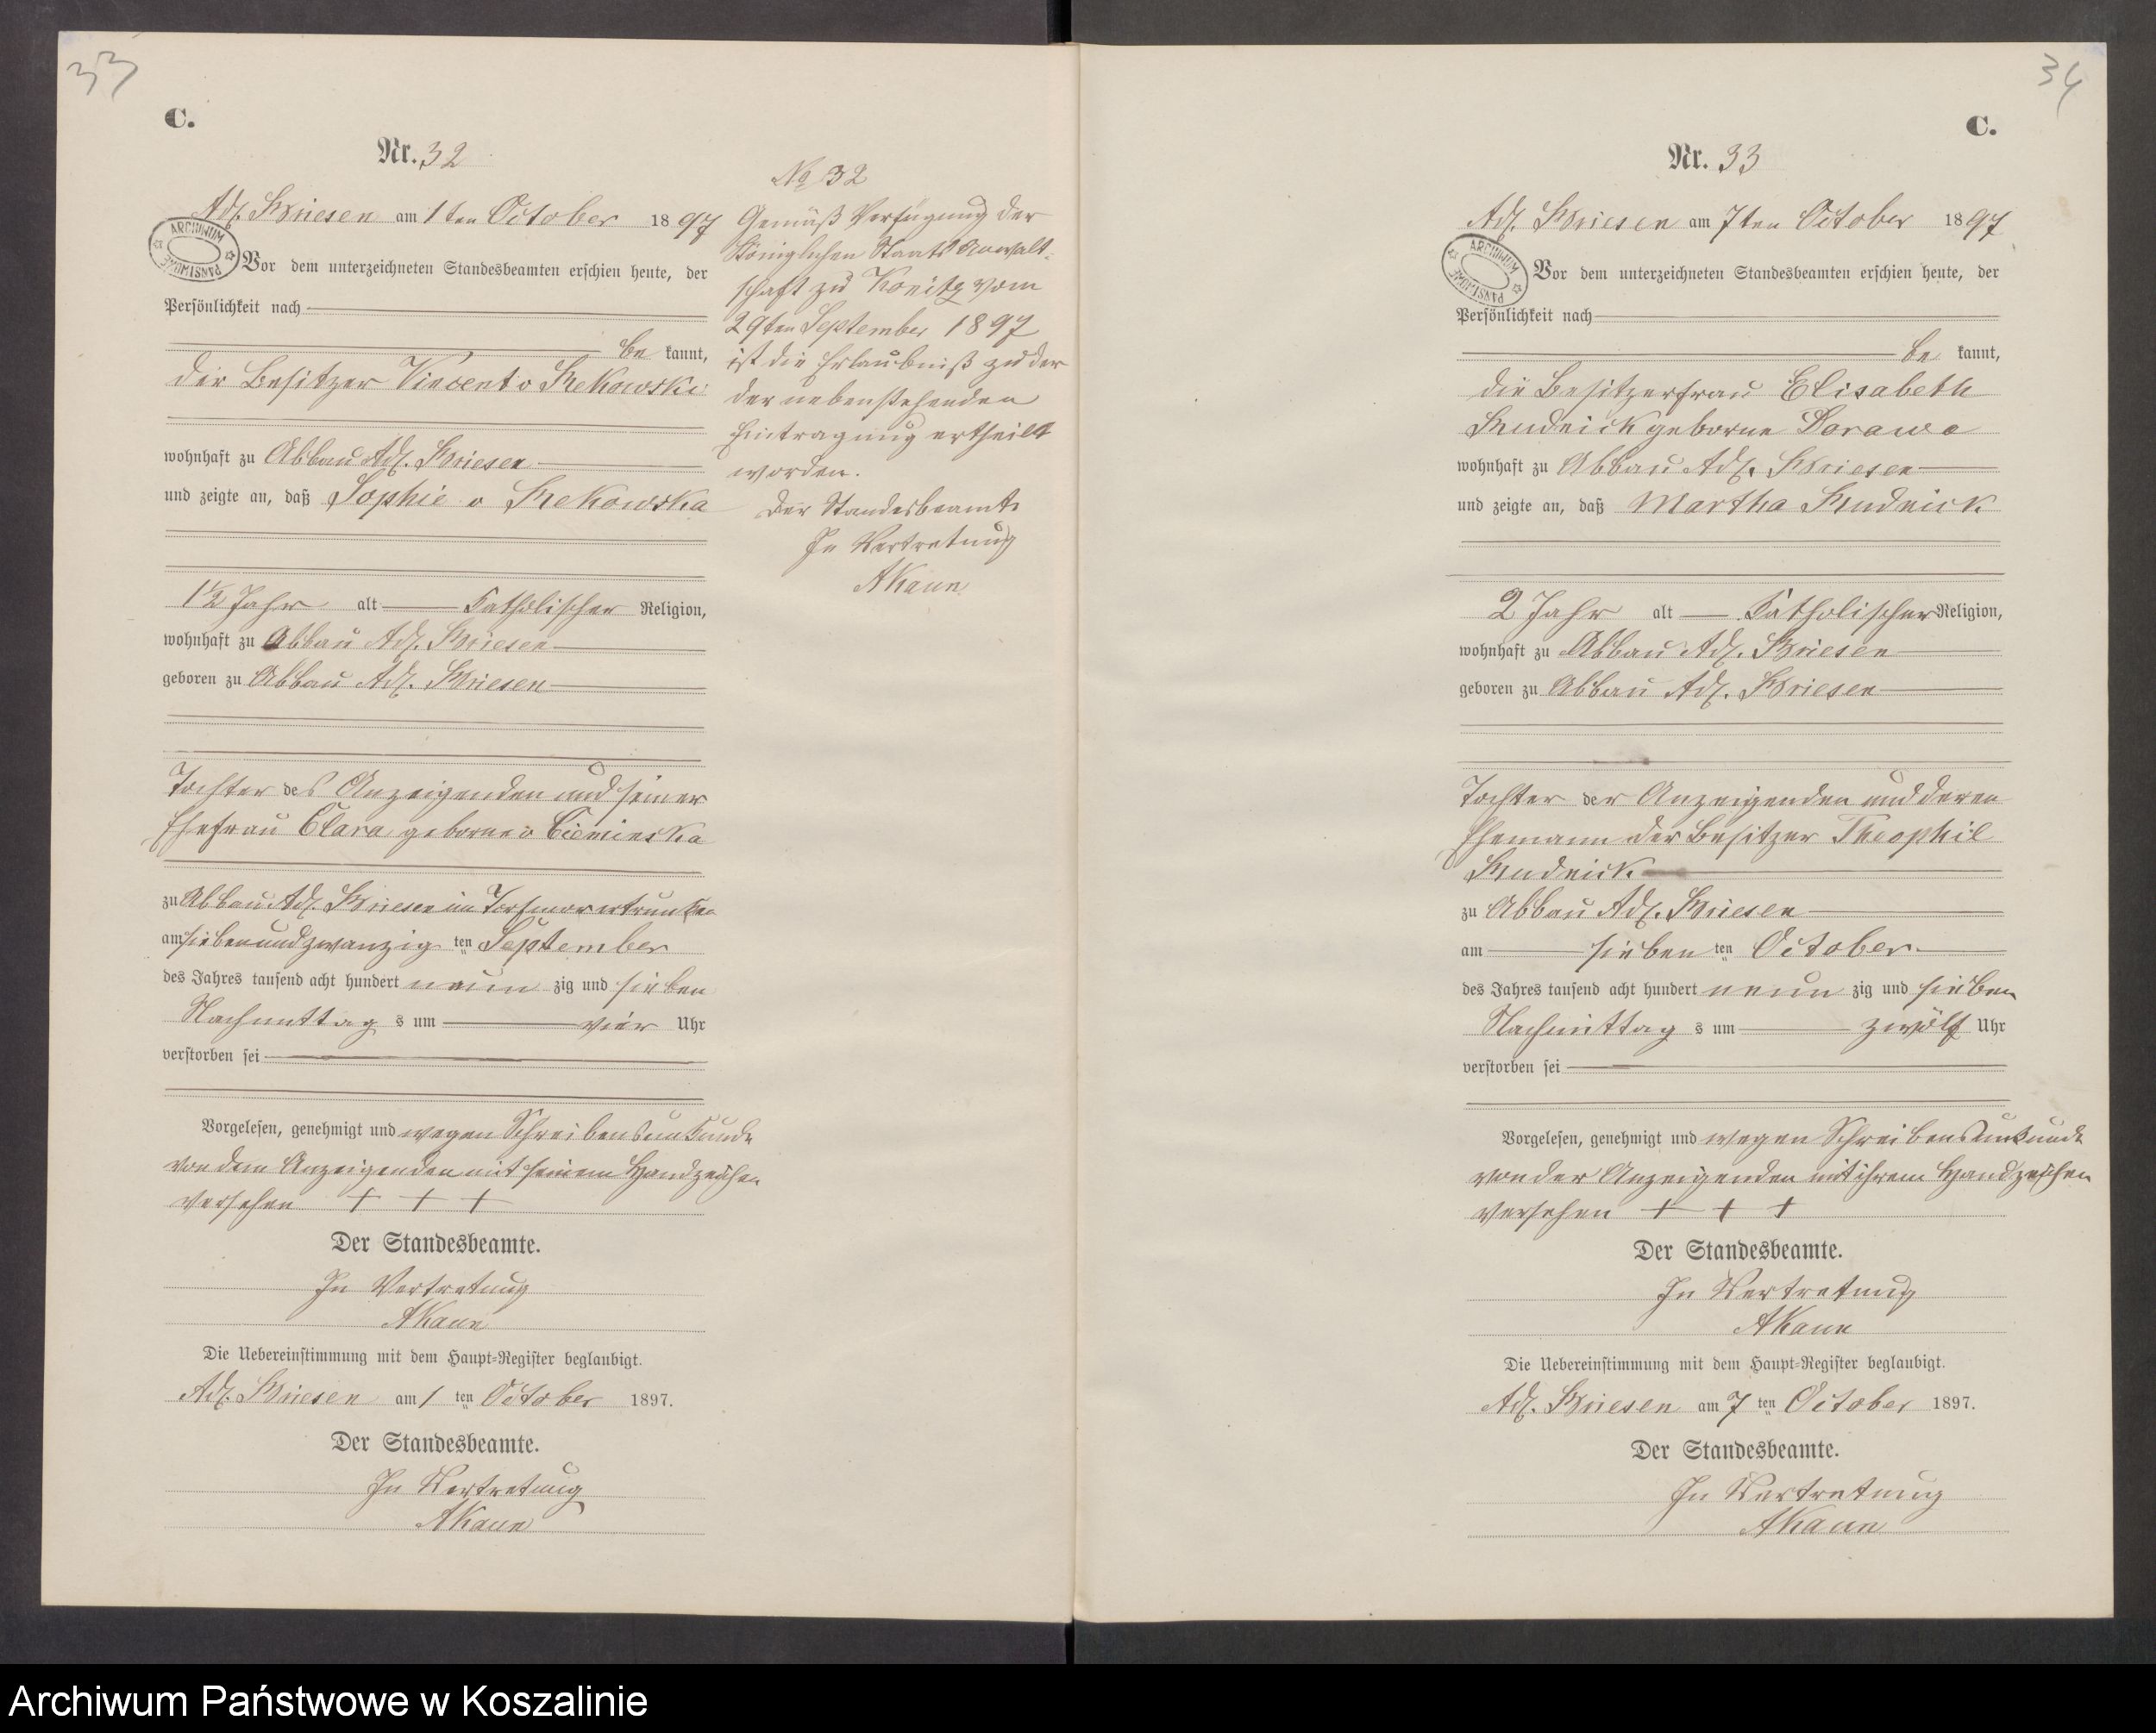 33
C.
Nr. 32
Adl. Briesen am 1ten October 1897
ARCHIWUM PAŃSTWOWE
Vor dem unterzeichneten Standesbeamten erschien heute, der
Persönlichkeit nach
be kannt,
der Besitzer Vincent v Rekowski
wohnhaft zu Abbau Adl. Briesen
und zeigte an, daß Sophie v Rekowska
1½ Jahr alt Katholischer Religion,
wohnhaft zu Abbau Adl. Briesen
geboren zu Abbau Adl. Briesen
Tochter des Anzeigenden und seiner
Ehefrau Clara geborne v
zu Abbau Adl. Briesen im Torfmoor ertrunken
am siebenundzwanzig ten September
des Jahres tausend acht hundert neun zig und sieben
Nachmittag s um vier Uhr
verstorben sei
Vorgelesen, genehmigt und wegen Schreibensunkunde
von dem Anzeigenden mit seinem Handzeichen
versehen + + +
Der Standesbeamte.
In Vertretung
AKaun
Die Uebereinstimmung mit dem Haupt-Register beglaubigt.
Adl. Briesen am 1 ten October 1897.
Der Standesbeamte.
In Vertretung
AKaun
No 32
Gemäß Verfügung der
Königlichen Staats Anwalt-
schaft zu Konitz vom
29ten September 1897
ist die Erlaubniß zu der
der nebenstehenden
Eintragung ertheilt
worden.
Der Standesbeamte
In Vertretung
AKaun
34
C.
Nr. 33
Adl. Briesen am 7ten October 1897
ARCHIWUM PAŃSTWOWE
Vor dem unterzeichneten Standesbeamten erschien heute, der
Persönlichkeit nach
be kannt,
die Besitzerfrau Elisabeth
Rudnick geborne
wohnhaft zu Abbau Adl. Briesen
und zeigte an, daß Martha Rudnick
2 Jahr alt Katholischer Religion,
wohnhaft zu Abbau Adl. Briesen
geboren zu Abbau Adl. Briesen
Tochter der Anzeigenden und deren
Ehemann der Besitzer Theophil
Rudnick
zu Abbau Adl. Briesen
am sieben ten October
des Jahres tausend acht hundert neun zig und sieben
Nachmittag s um zwölf Uhr
verstorben sei
Vorgelesen, genehmigt und wegen Schreibensunkunde
von der Anzeigenden mit ihrem Handzeichen
versehen + + +
Der Standesbeamte.
In Vertretung
AKaun
Die Uebereinstimmung mit dem Haupt-Register beglaubigt.
Adl. Briesen am 7 ten October 1897.
Der Standesbeamte.
In Vertretung
AKaun
Archiwum Państwowe w Koszalinie